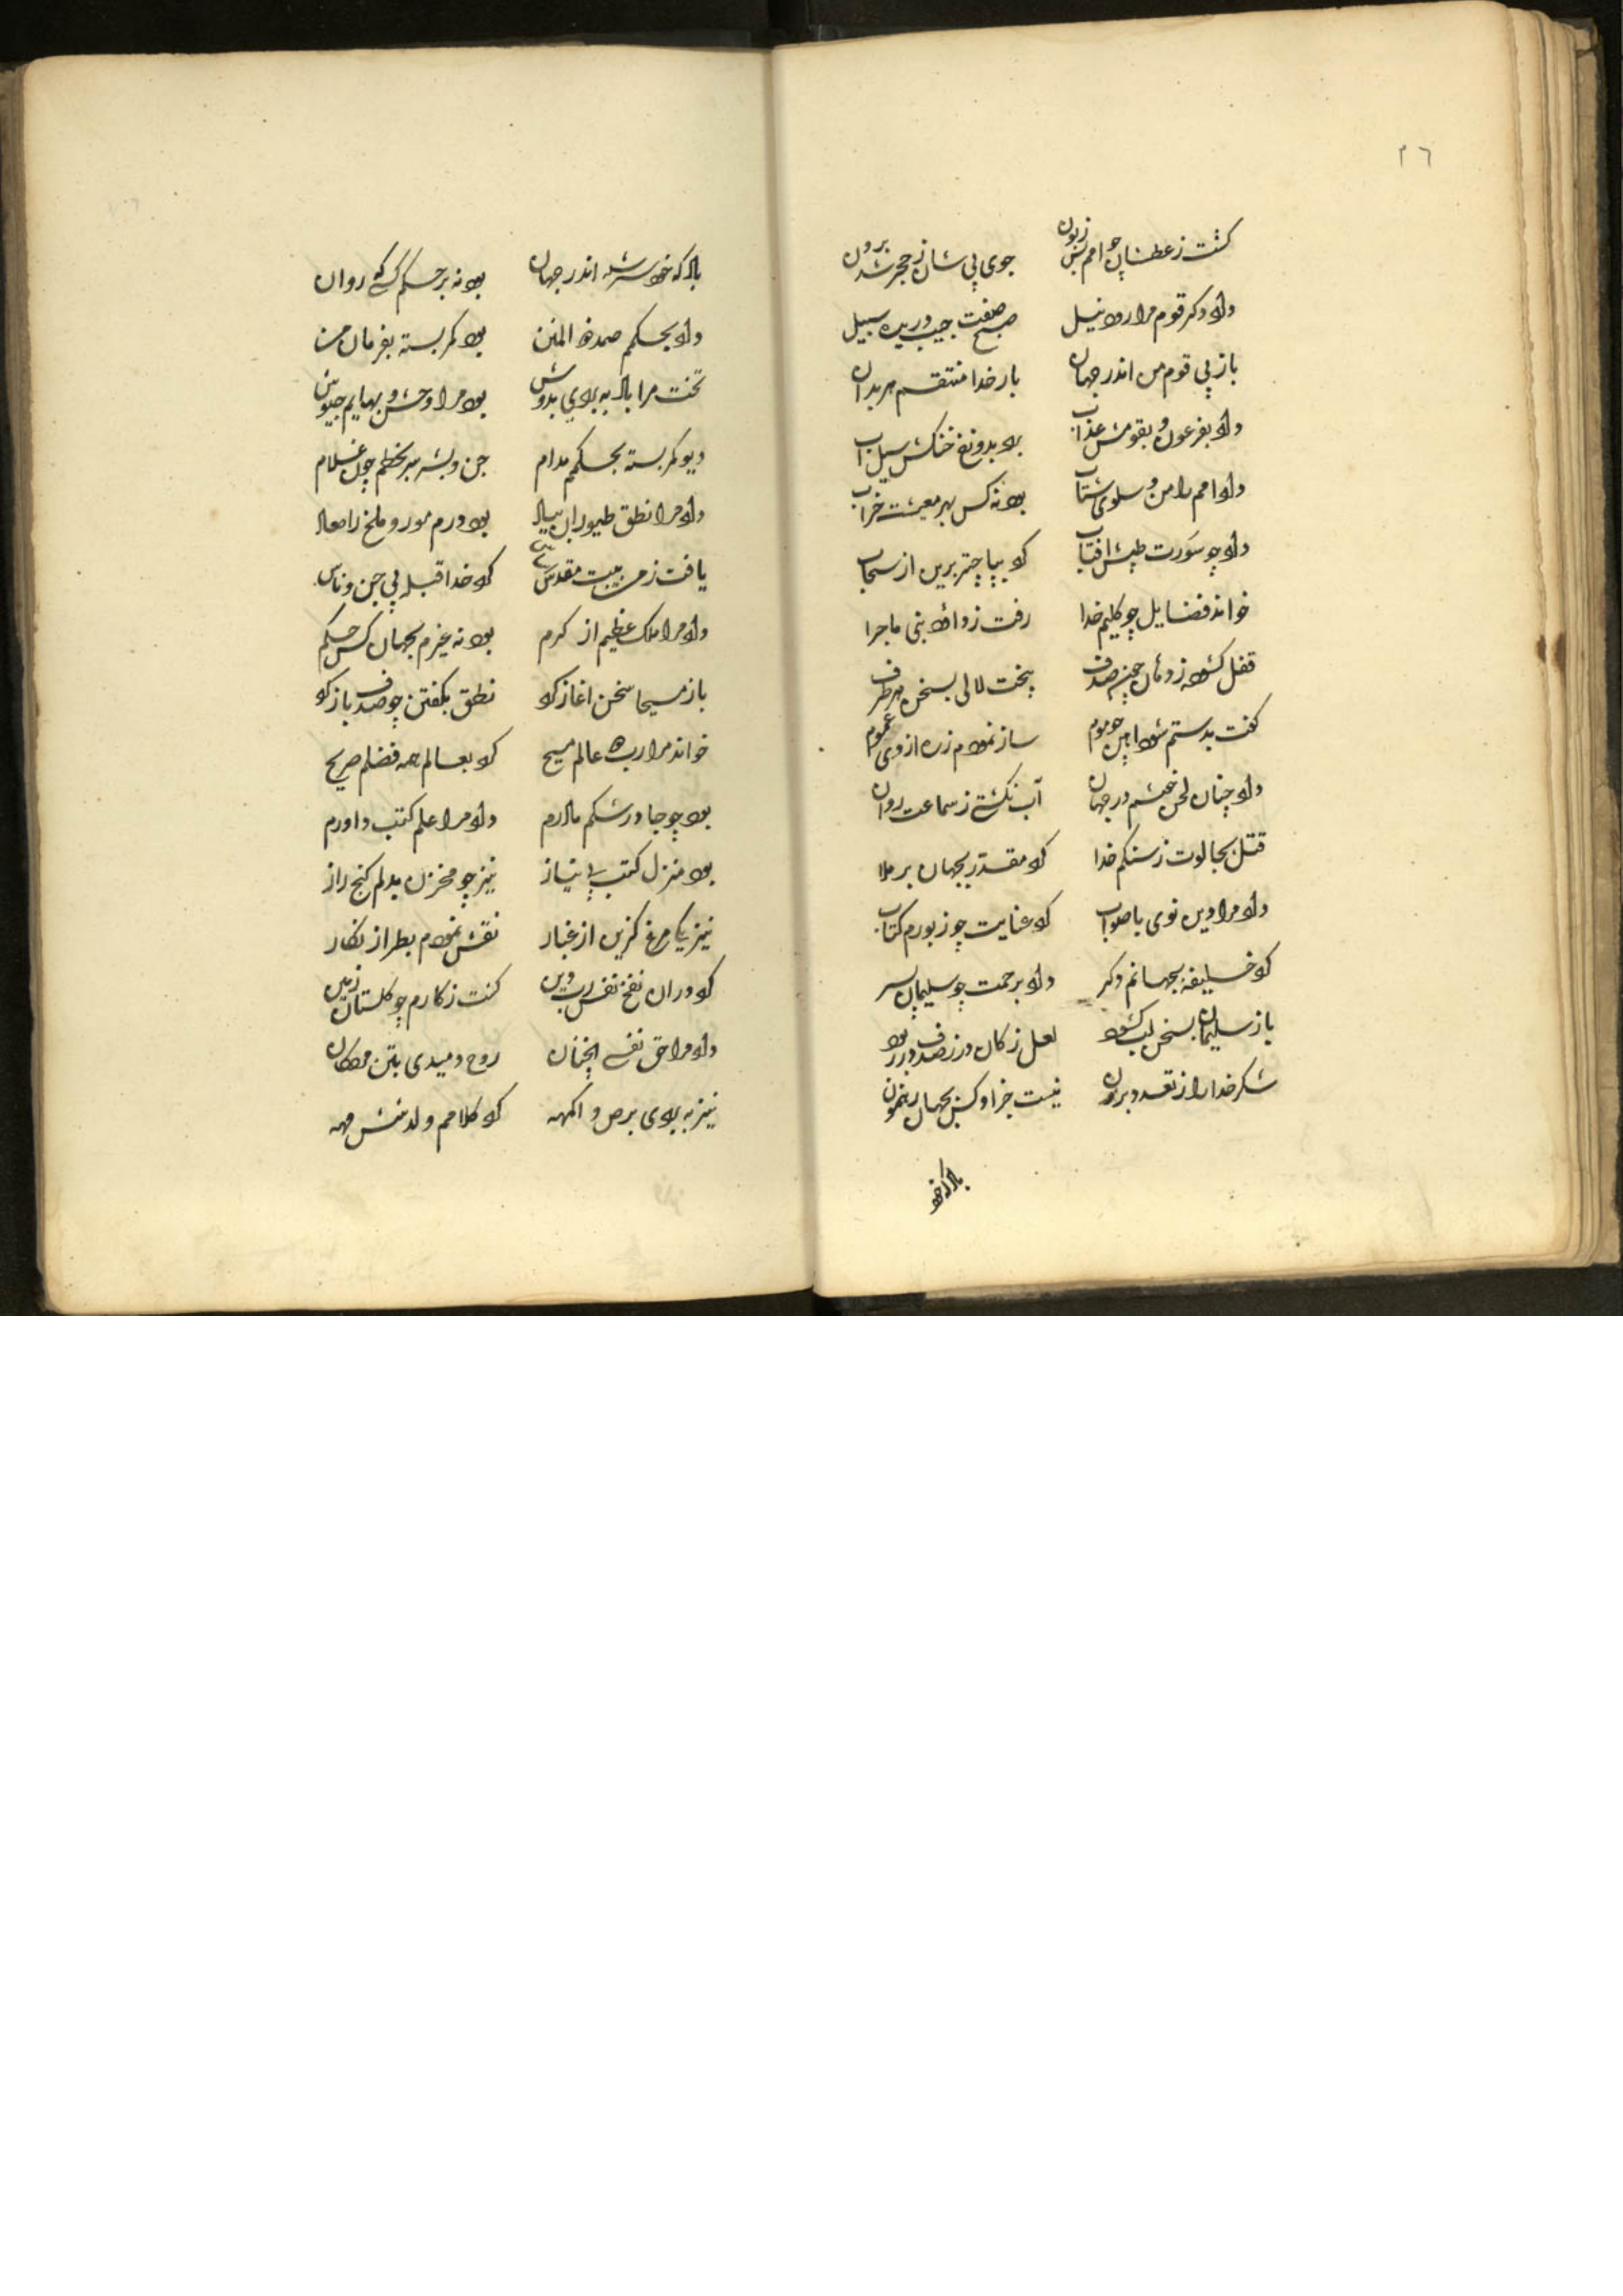 ۲٦
کشت ز عطشان چو امم بس زبون جوی پی شان ز حجر شد برون
داد دکر قوم مرا رود نیل صبح صفت جیب دریده سبیل
باز پی قوم من اندر جهان بار خدا منتقم هر بدان
داد بفرعون و بقومش عذاب برد بدوزخ خنکش سیل آب
داد امم را من و سلوی شتاب بود نه کس بهر معیشت خراب
داد چو سورت طپش افتاب کرد بپا چتر برین از سحاب
خواند فضایل چو کلیم خدا رفت ز داود بنی ماجرا
قفل کشوده ز دهان چون صدف ریخت لالی بسخن هر طرف
کفت بدستم شود اهن چو موم ساز نمودم زره از وی عموم
داد چنان لحن خوشم در جهان آب نکشتی ز سماعت روان
قتل بجالوت ز سنکم خدا کرد مقدر بجهان بر ملا
داد مرا دین نوی با صواب کرد عنایت چو زبورم کتاب
کرد خلیفه بجهانم دکر داد برحمت چو سلیمان پسر
باز سلیمان بسخن لب کشود لعل ز کان در ز صدف در ربود
شکر خدا را ز تعدد برون نیست جز او کس بجهان رهنمون
باد که خود
باد که خود سر شده اندر جهان بود نه بر حکم کسی روان
داد بحکمم صمد ذو المنن بود کمر بسته بفرمان من
تخت مرا باد به بردی بدوش بود مرا وحش و بهایم جیوش
دیو کمر بسته بحکمم مدام جن و بشر سر بخطم چون غلام
داد مرا نطق طیوران بیاد بود درم مور و ملخ را معاد
یافت ز من بیت مقدس اساس کرد خدا قبله پی جن و ناس
داد مرا ملک عظیم از کرم بود نه غیرم بجهان کس حکم
باز مسیحا سخن اغاز کرد نطق بکفتن چو صدف باز کرد
خواند مرا رب دو عالم مسیح کرد بعالم همه فضلم صریح
بود چو جا در شکم مادرم داد مرا علم کتب داورم
بود منزل کتب بی نیاز نیز چو مخزن بدلم کنج راز
نیز یکی مرغ کزین از غبار نقش نمودم بطراز نکار
کرد دران نفخ نفس رب دین کشت ز کارم چو کلستان زمین
داد مرا حق نفسی انچنان روح دمیدی بتن مردکان
نیز به بردی برص و اکمهه کرد کلامم ولد منش مهه